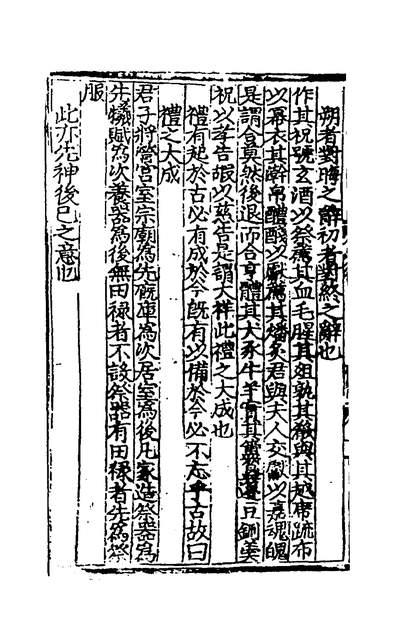 朔者對晦之辭初者對終之辭也
作其祝號玄酒以祭薦其血毛腥其俎孰其殽與其越席疏布
以冪衣其澣帛醴醆以獻薦其燔炙君與夫人交獻以嘉魂魄
是謂合莫然後退而合亨體其犬豕牛羊實其簠簋籩豆鉶羹
祝以孝告嘏以慈告是謂大祥此禮之大成也
禮有起於古必有成於今旣有以備於今必不忘乎古故曰
禮之大成
君子將營宮室宗廟爲先廐庫爲次居室爲後凡家造祭器爲
先犧賦爲次養器爲後無田祿者不設祭器有田祿者先爲祭
服
此亦先神後己之意也